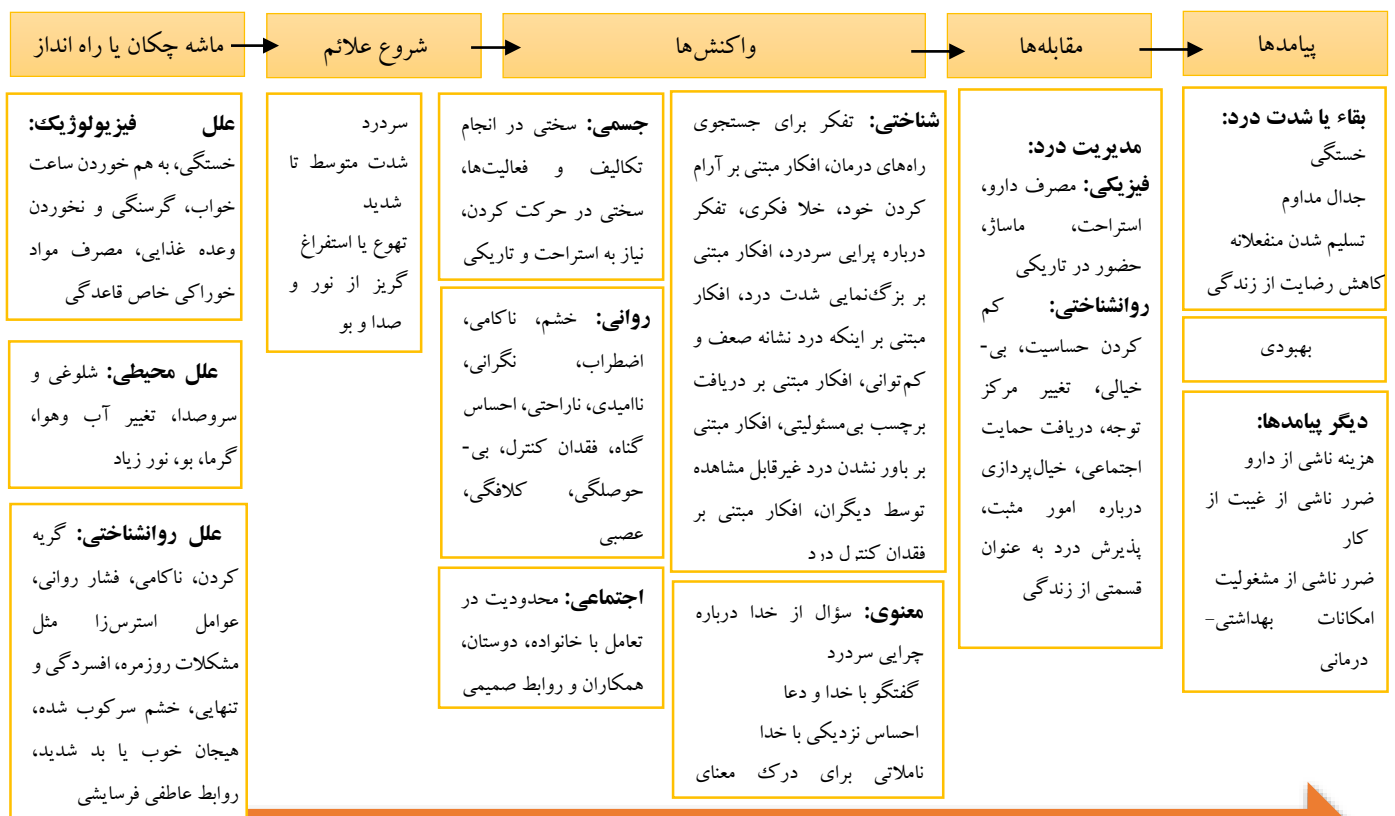 ماشه چکان یا راه انداز
شروع علائم
واکنش‌ها
مقابله‌ها
پیامدها
علل فیزیولوژیک:
خستگی، به هم خوردن ساعت
خواب، گرسنگی و نخوردن
وعده غذایی، مصرف مواد
خوراکی خاص قاعدگی
علل محیطی: شلوغی و
سروصدا، تغییر آب وهوا،
گرما، بو، نور زیاد
علل روانشناختی: گریه
کردن، ناکامی، فشار روانی،
عوامل استرس‌زا مثل
مشکلات روزمره، افسردگی و
تنهایی، خشم سرکوب شده،
هیجان خوب یا بد شدید،
روابط عاطفی فرسایشی
سردرد
شدت متوسط تا
شدید
تهوع یا استفراغ
گریز از نور و
صدا و بو
جسمی: سختی در انجام
تکالیف و فعالیت‌ها،
سختی در حرکت کردن،
نیاز به استراحت و تاریکی
روانی: خشم، ناکامی،
اضطراب، نگرانی،
ناامیدی، ناراحتی، احساس
گناه، فقدان کنترل، بی-
حوصلگی، کلافگی،
عصبی
اجتماعی: محدودیت در
تعامل با خانواده، دوستان،
همکاران و روابط صمیمی
شناختی: تفکر برای جستجوی
راه‌های درمان، افکار مبتنی بر آرام
کردن خود، خلا فکری، تفکر
درباره پرایی سردرد، افکار مبتنی
بر بزگ‌نمایی شدت درد، افکار
مبتنی بر اینکه درد نشانه صعف و
کم‌توانی، افکار مبتنی بر دریافت
برچسب بی‌مسئولیتی، افکار مبتنی
بر باور نشدن درد غیرقابل مشاهده
توسط دیگران، افکار مبتنی بر
فقدان کنترل درد
معنوی: سؤال از خدا درباره
چرایی سردرد
گفتگو با خدا و دعا
احساس نزدیکی با خدا
ناملاتی برای درک معنای
مدیریت درد:
فیزیکی: مصرف دارو،
استراحت، ماساژ،
حضور در تاریکی
روانشناختی: کم
کردن حساسیت، بی-
خیالی، تغییر مرکز
توجه، دریافت حمایت
اجتماعی، خیال‌پردازی
درباره امور مثبت،
پذیرش درد به عنوان
قسمتی از زندگی
بقاء یا شدت درد:
خستگی
جدال مداوم
تسلیم شدن منفعلانه
کاهش رضایت از زندگی
بهبودی
دیگر پیامدها:
هزینه ناشی از دارو
ضرر ناشی از غیبت از
کار
ضرر ناشی از مشغولیت
امکانات بهداشتی-
درمانی